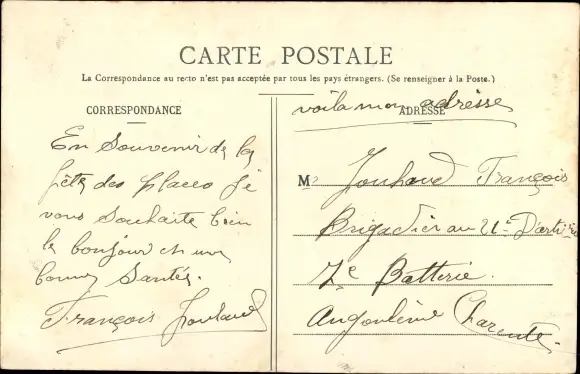 CARTE POSTALE
La Correspondance au recto n'est pas acceptée par tous les pays étrangers. (Se renseigner à la Poste.)
CORRESPONDANCE
En Souvenir de la
fête des places Je
vous Souhaite bien
le bonjour et une
bonne Santée.
François Jouhaud
voila mon adrèsse
ADRESSE
M Jouhaud François
Brigadier au 21e D'artirie
7e Batterie.
Angoulème Charente.